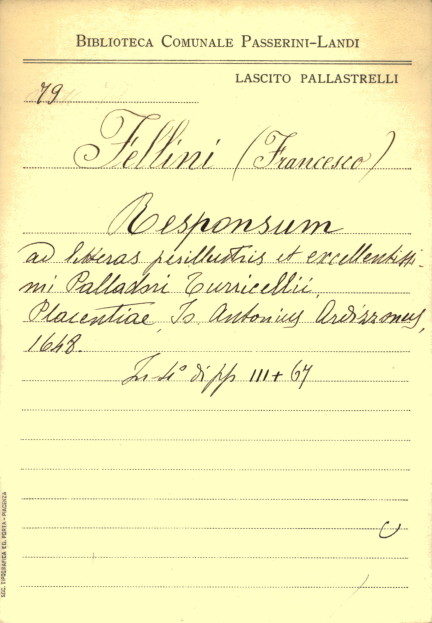 BIBLIOTECA COMUNALE PASSERINI-LANDI
LASCITO PALLASTRELLI
79
Fellini (Francesco)
Responsum
ad litteras perillustris et excellentissi-
mi Palladini Turricellii,
Placentiae, Io. Antonius Ardizzonus,
1648.
In 4° di pp III + 67
SOC. TIPOGRAFICA ED. PORTA - PIACENZA